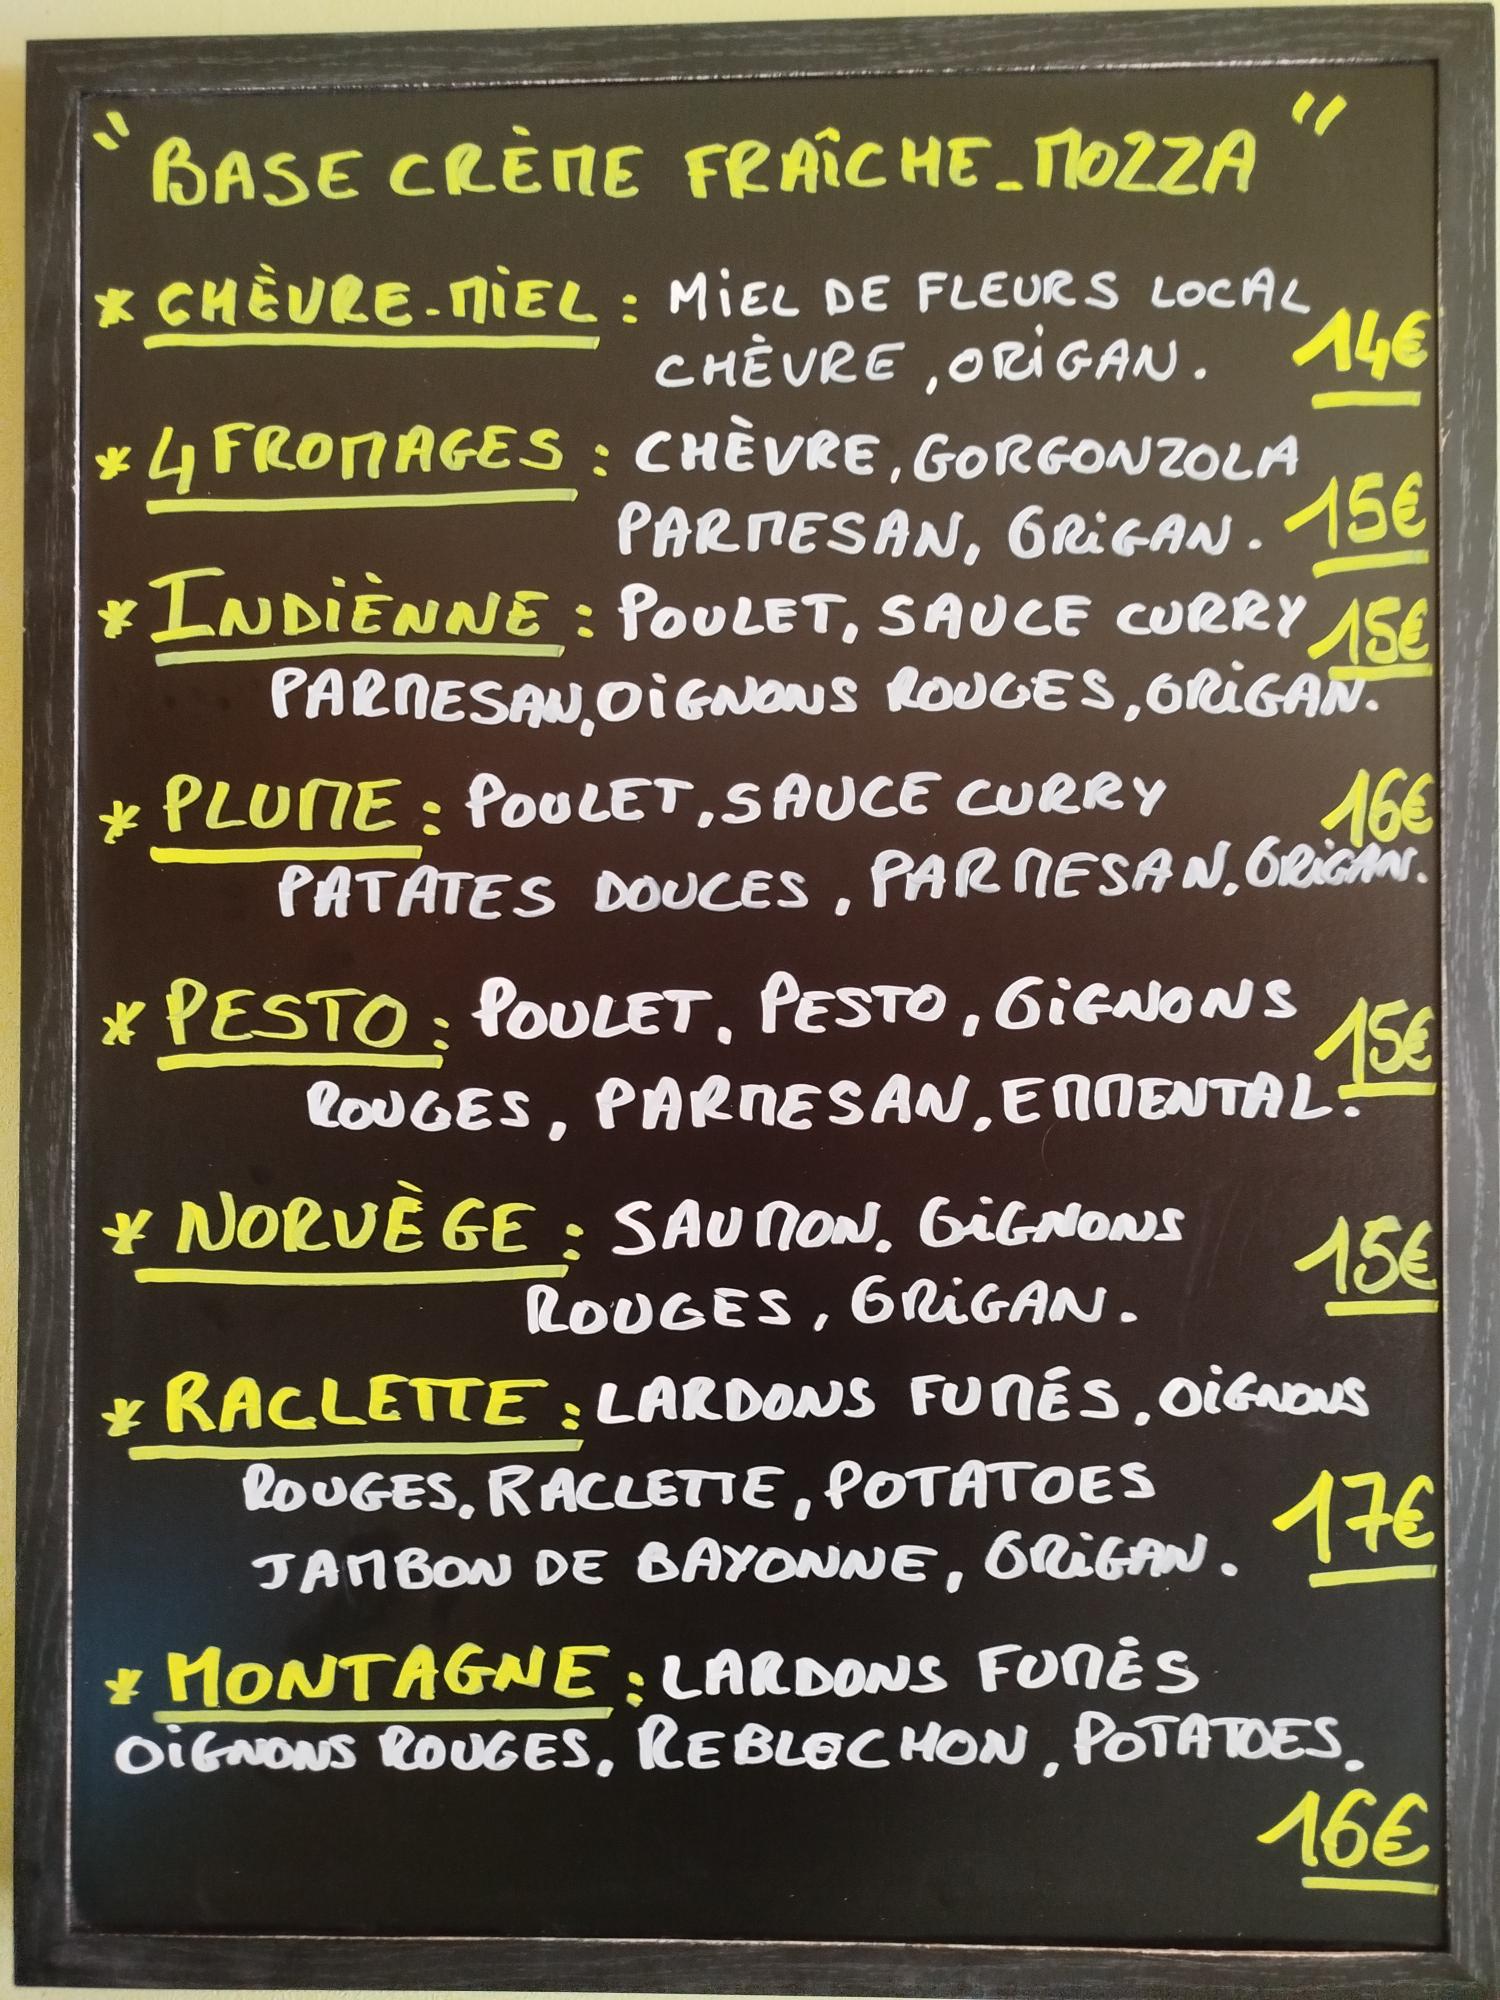 "BASE CRÈME FRAÎCHE_MOZZA"
* CHÈVRE-MIEL : MIEL DE FLEURS LOCAL
CHÈVRE, ORIGAN. 14€
* 4 FROMAGES : CHÈVRE, GORGONZOLA
PARMESAN, ORIGAN. 15€
* INDIÈNNE : POULET, SAUCE CURRY 15€
PARMESAN, OIGNONS ROUGES, ORIGAN.
* PLUME : POULET, SAUCE CURRY 16€
PATATES DOUCES, PARMESAN, ORIGAN.
* PESTO : POULET, PESTO, OIGNONS 15€
ROUGES, PARMESAN, EMMENTAL.
* NORVÈGE : SAUMON, OIGNONS 15€
ROUGES, ORIGAN.
* RACLETTE : LARDONS FUMÉS, OIGNONS
ROUGES, RACLETTE, POTATOES 17€
JAMBON DE BAYONNE, ORIGAN.
* MONTAGNE : LARDONS FUMÉS
OIGNONS ROUGES, REBLOCHON, POTATOES.
16€